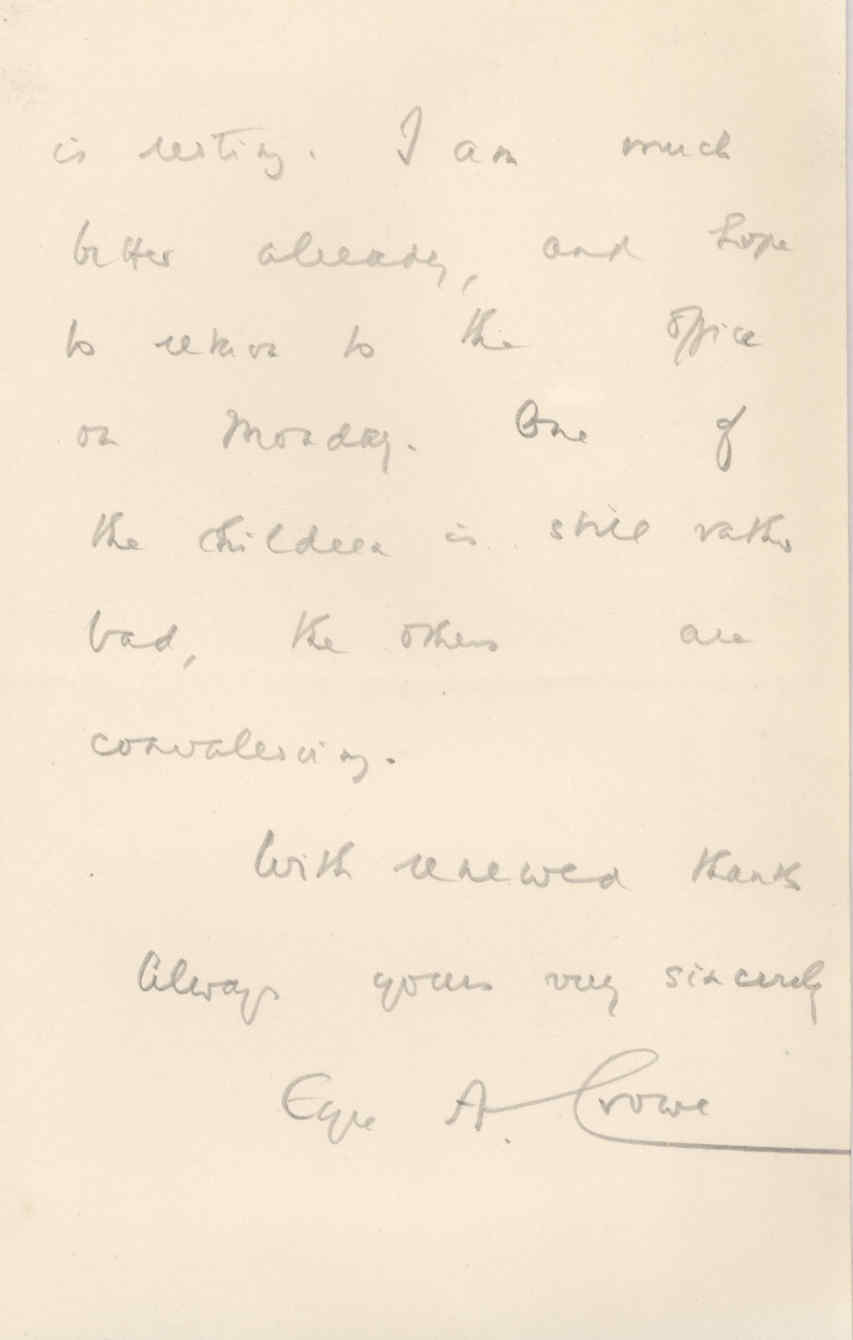 is resting. I am much
better already, and hope
to return to the office
on Monday. One of
the children is still rather
bad, the others are
convalescing.
With renewed thanks
Always yours very sincerely
Eyre A. Crowe